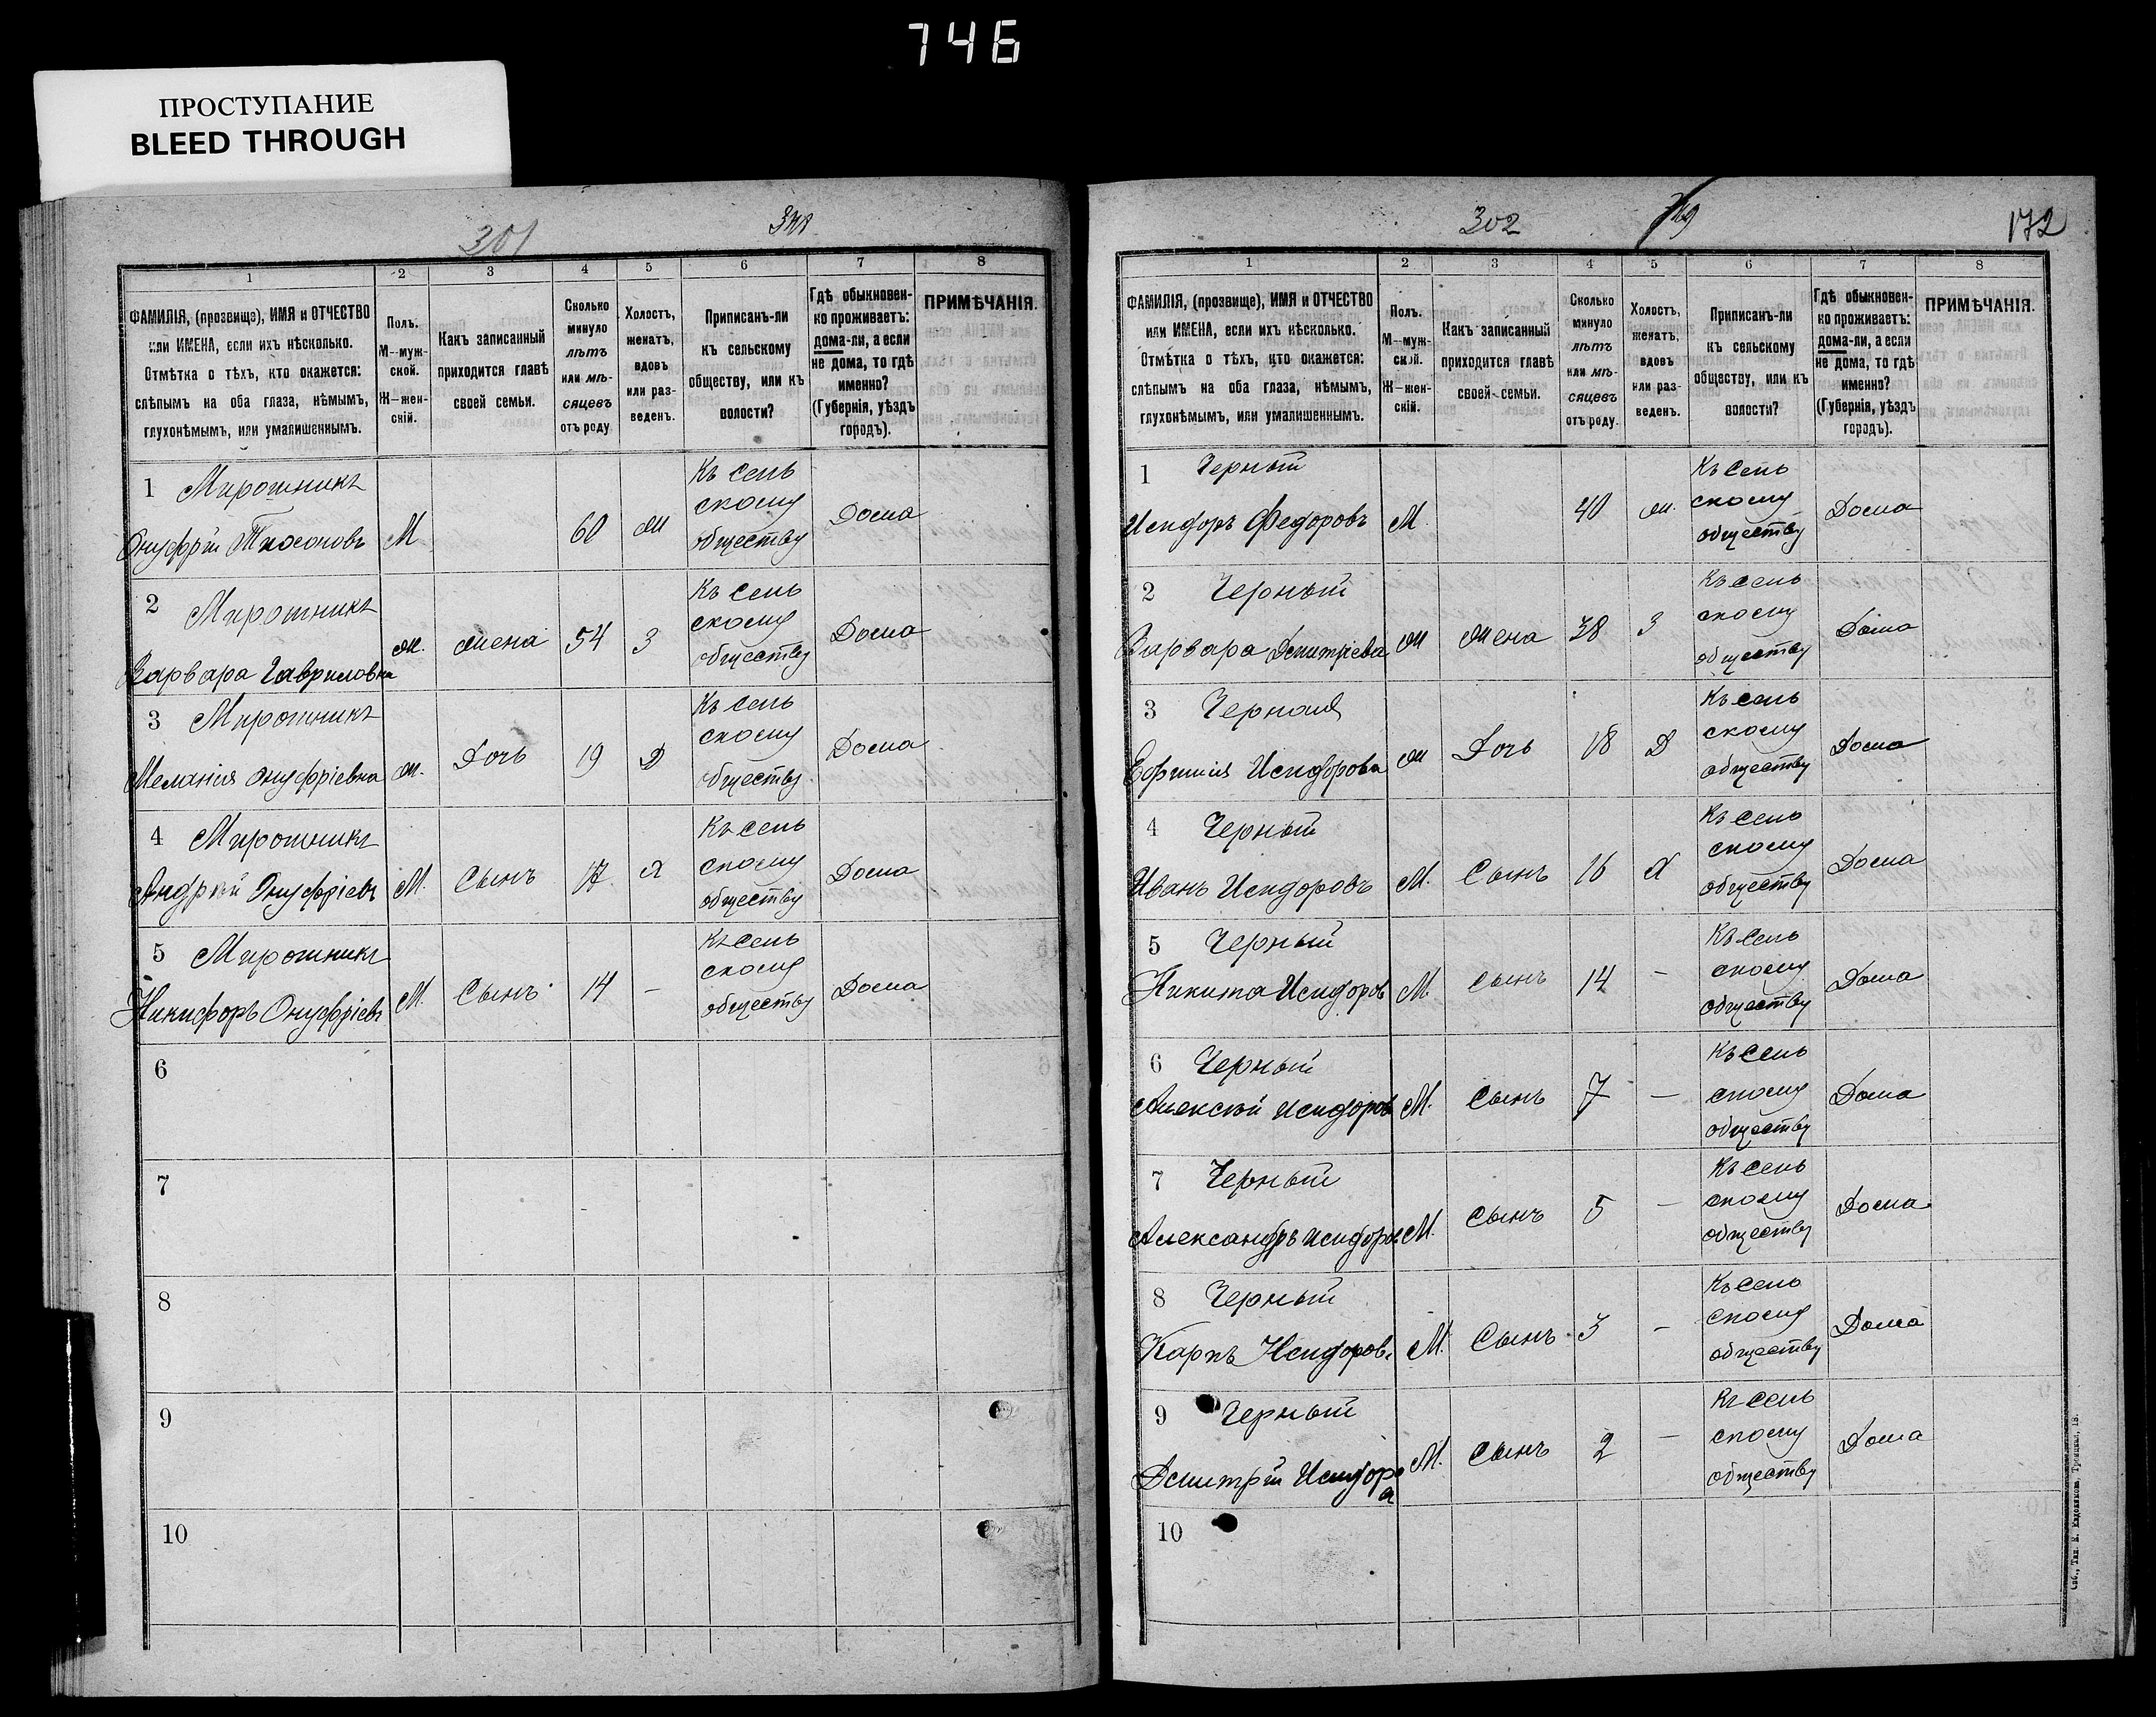 746
ПРОСТУПАНИЕ
BLEED THROUGH
301
1 2 3 4 5 6 7 8
ФАМИЛІЯ, (прозвище), ИМЯ и ОТЧЕСТВО
или ИМЕНА, если ихъ нѣсколько.
Отмѣтка о тѣхъ, кто окажется:
слѣпымъ на оба глаза, нѣмымъ,
глухонѣмымъ, или умалишеннымъ.
Полъ.
М—муж-
ской.
Ж—жен-
скій.
Какъ записанный
приходится главѣ
своей семьи.
Сколько
минуло
лѣтъ
или мѣ-
сяцевъ
отъ роду.
Холостъ,
женатъ,
вдовъ
или раз-
веденъ.
Приписанъ-ли
къ сельскому
обществу, или къ
волости?
Гдѣ обыкновен-
ко проживаетъ:
дома-ли, а если
не дома, то гдѣ
именно?
(Губернія, уѣздъ
городъ).
ПРИМѢЧАНІЯ.
1 Мирошникъ
Онуфрій М 60 ж Къ сель
скому
обществу Дома
2 Мирошникъ
Варвара Гавриловна ж. жена 54 З Къ сель
скому
обществу Дома
3 Мирошникъ
Меланія Онуфріевна ж. Дочь 19 Д Къ сель
скому
обществу Дома
4 Мирошникъ
Андрей Онуфріевъ М. Сынъ 17 Х Къ сель
скому
обществу Дома
5 Мирошникъ
Никифоръ Онуфріевъ М. Сынъ 14 — Къ сель
скому
обществу Дома
6
7
8
9
10
302
172
1 2 3 4 5 6 7 8
ФАМИЛІЯ, (прозвище), ИМЯ и ОТЧЕСТВО
или ИМЕНА, если ихъ нѣсколько.
Отмѣтка о тѣхъ, кто окажется:
слѣпымъ на оба глаза, нѣмымъ,
глухонѣмымъ, или умалишеннымъ.
Полъ.
М—муж-
ской.
Ж—жен-
скій.
Какъ записанный
приходится главѣ
своей семьи.
Сколько
минуло
лѣтъ
или мѣ-
сяцевъ
отъ роду.
Холостъ,
женатъ,
вдовъ
или раз-
веденъ.
Приписанъ-ли
къ сельскому
обществу, или къ
волости?
Гдѣ обыкновен-
ко проживаетъ:
дома-ли, а если
не дома, то гдѣ
именно?
(Губернія, уѣздъ
городъ).
ПРИМѢЧАНІЯ.
1 Черный
Исидоръ Федоровъ М. 40 ж. Къ сель
скому
обществу Дома
2 Черный
Варвара Дмитріева ж жена 38 З Къ сель
скому
обществу Дома
3 Черная
Ефимия Исидорова ж Дочь 18 Д Къ сель
скому
обществу Дома
4 Черный
Иванъ Исидоровъ М. Сынъ 16 Х Къ сель
скому
обществу Дома
5 Черный
Никита Исидоров М. Сынъ 14 — Къ сель
скому
обществу Дома
6 Черный
Алексѣй Исидоров М. Сынъ 7 — Къ сель
скому
обществу Дома
7 Черный
Александръ Исидоров М. Сынъ 5 — Къ сель
скому
обществу Дома
8 Черный
Карпъ Исидоров. М. Сынъ 3 — Къ сель
скому
обществу Дома
9 Черный
Дмитрій М. Сынъ 2 — Къ сель
скому
обществу Дома
10
Спб., Тип. Е. Евдокимова, Троицкая, 18.